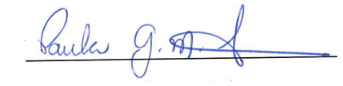 Paula G. M.